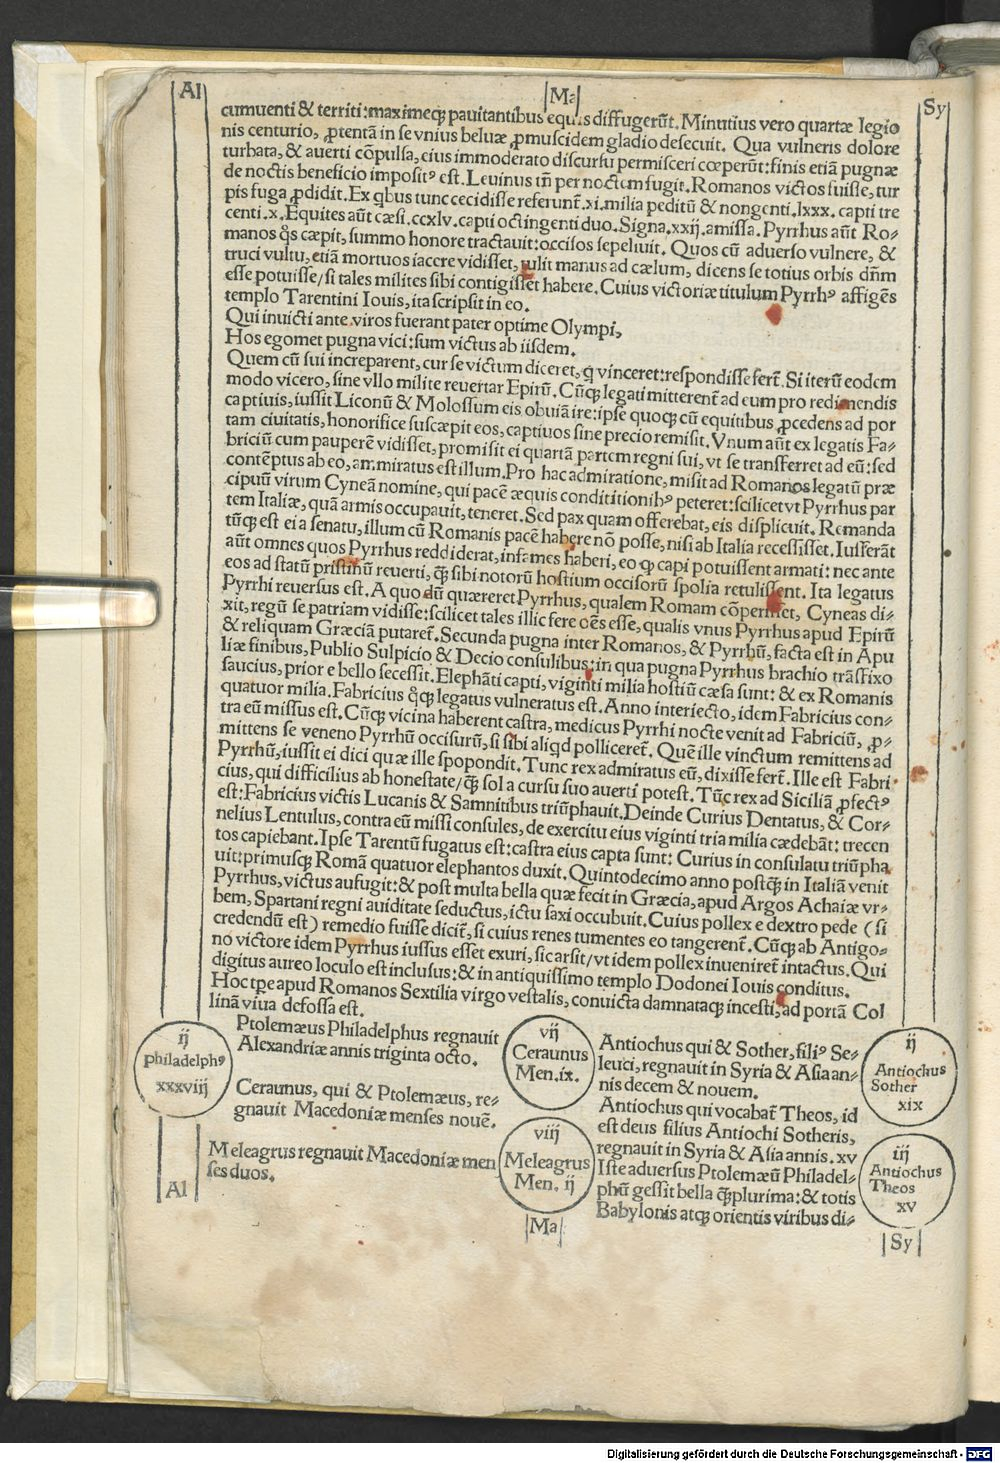 Al
Ma
Sy
cumuenti & territi: maximeqꝫ pauitantibus equis diffugerūt. Minutius vero quartæ legio
nis centurio, ꝓtentā in se vnius beluæ ꝓmuscidem gladio desecuit. Qua vulneris dolore
turbata, & auerti cōpulsa, eius immoderato discursu permisceri cœperūt: finis etiā pugnæ
de noctis beneficio impositꝰ est. Leuinus tñ per noctem fugit. Romanos victos fuisse, tur
pis fuga ꝓdidit. Ex qbus tunc cecidisse referunt̃ .xi. milia peditū & nongenti .lxxx. capti tre
centi .x. Equites aūt cæsi .ccxlv. capti octingenti duo. Signa .xxij. amissa. Pyrrhus aūt Ro⸗
manos q̊s cæpit, summo honore tractauit: occisos sepeliuit. Quos cū aduerso vulnere, &
truci vultu, etiā mortuos iacere vidisset, tulit manus ad cælum, dicens se totius orbis dñm
esse potuisse/ si tales milites sibi contigisset habere. Cuius victoriæ titulum Pyrrhꝰ affigēs
templo Tarentini Iouis, ita scripsit in eo.
Qui inuicti ante viros fuerant pater optime Olympi,
Hos egomet pugna vici: sum victus ab iisdem.
Quem cū sui increparent, cur se victum diceret, q̇ vinceret: respondisse fert̃. Si iterū eodem
modo vicero, sine vllo milite reuertar Epirū. Cūqꝫ legati mitterent̃ ad eum pro redimendis
captiuis, iussit Liconū & Molossum eis obuiā ire: ipse quoqꝫ cū equitibus ꝓcedens ad por
tam ciuitatis, honorifice suscæpit eos, captiuos sine precio remisit. Vnum aūt ex legatis Fa⸗
briciū cum pauperē vidisset, promisit ei quartā partem regni sui, vt se transferret ad eū: sed
contēptus ab eo, ammiratus est illum. Pro hac admiratione, misit ad Romanos legatū præ
cipuū virum Cyneā nomine, qui pacē æquis condititionibꝰ peteret: scilicet vt Pyrrhus par
tem Italiæ, quā armis occupauit, teneret. Sed pax quam offerebat, eis displicuit. Remanda
tūqꝫ est ei a senatu, illum cū Romanis pacē habere nō posse, nisi ab Italia recessisset. Iusserāt
aūt omnes quos Pyrrhus reddiderat, infames haberi, eo ꝙ capi potuissent armati: nec ante
eos ad statū pristinū reuerti, qꝫ sibi notorū hostium occisorū spolia retulissent. Ita legatus
Pyrrhi reuersus est. A quo dū quæreret Pyrrhus, qualem Romam cōperisset, Cyneas di⸗
xit, regū se patriam vidisse: scilicet tales illic fere oēs esse, qualis vnus Pyrrhus apud Epirū
& reliquam Græciā putaret̃. Secunda pugna inter Romanos, & Pyrrhū, facta est in Apu
liæ finibus, Publio Sulpicio & Decio consulibus: in qua pugna Pyrrhus brachio trāsfixo
saucius, prior e bello secessit. Elephāti capti, viginti milia hostiū cæsa sunt: & ex Romanis
quatuor milia. Fabricius q̊qꝫ legatus vulneratus est. Anno interiecto, idem Fabricius con⸗
tra eū missus est. Cūqꝫ vicina haberent castra, medicus Pyrrhi nocte venit ad Fabriciū, ꝓ⸗
mittens se veneno Pyrrhū occisurū, si sibi aliqd polliceret̃. Quē ille vinctum remittens ad
Pyrrhū, iussit ei dici quæ ille spopondit. Tunc rex admiratus eū, dixisse fert̃. Ille est Fabri
cius, qui difficilius ab honestate/ qꝫ sol a cursu suo auerti potest. Tūc rex ad Siciliā ꝓfectꝰ
est: Fabricius victis Lucanis & Samnitibus triūphauit. Deinde Curius Dentatus, & Cor⸗
nelius Lentulus, contra eū missi consules, de exercitu eius viginti tria milia cædebāt: trecen
tos capiebant. Ipse Tarentū fugatus est: castra eius capta sunt: Curius in consulatu triūpha
uit: primusqꝫ Romā quatuor elephantos duxit. Quintodecimo anno postqꝫ in Italiā venit
Pyrrhus, victus aufugit: & post multa bella quæ fecit in Græcia, apud Argos Achaiæ vr⸗
bem, Spartani regni auiditate seductus, ictu saxi occubuit. Cuius pollex e dextro pede (si
credendū est) remedio fuisse dicit̃, si cuius renes tumentes eo tangerent̃. Cūqꝫ ab Antigo⸗
no victore idem Pyrrhus iussus esset exuri, sic arsit/ vt idem pollex inueniret̃ intactus. Qui
digitus aureo loculo est inclusus: & in antiquissimo templo Dodonei Iouis conditus.
Hoc tꝑe apud Romanos Sextilia virgo vestalis, conuicta damnataqꝫ incesti, ad portā Col
linā viua defossa est.
ij
Philadelphꝰ
xxxviij
Ptolemæus Philadelphus regnauit
Alexandriæ annis triginta octo.
Ceraunus, qui & Ptolemæus, re⸗
gnauit Macedoniæ menses nouē.
Meleagrus regnauit Macedoniæ men
ses duos.
Al
vij
Ceraunus
Men. ix.
viij
Meleagrus
Men. ij
Ma
Antiochus qui & Sother, filiꝰ Se⸗
leuci, regnauit in Syria & Asia an⸗
nis decem & nouem.
Antiochus qui vocabat̃ Theos, id
est deus filius Antiochi Sotheris,
regnauit in Syria & Asia annis .xv
Iste aduersus Ptolemæū Philadel⸗
phū gessit bella qꝫplurima: & totis
Babylonis atqꝫ orientis viribus di⸗
ij
Antiochus
Sother
xix
iij
Antiochus
Theos
xv
Sy
Digitalisierung gefördert durch die Deutsche Forschungsgemeinschaft - DFG